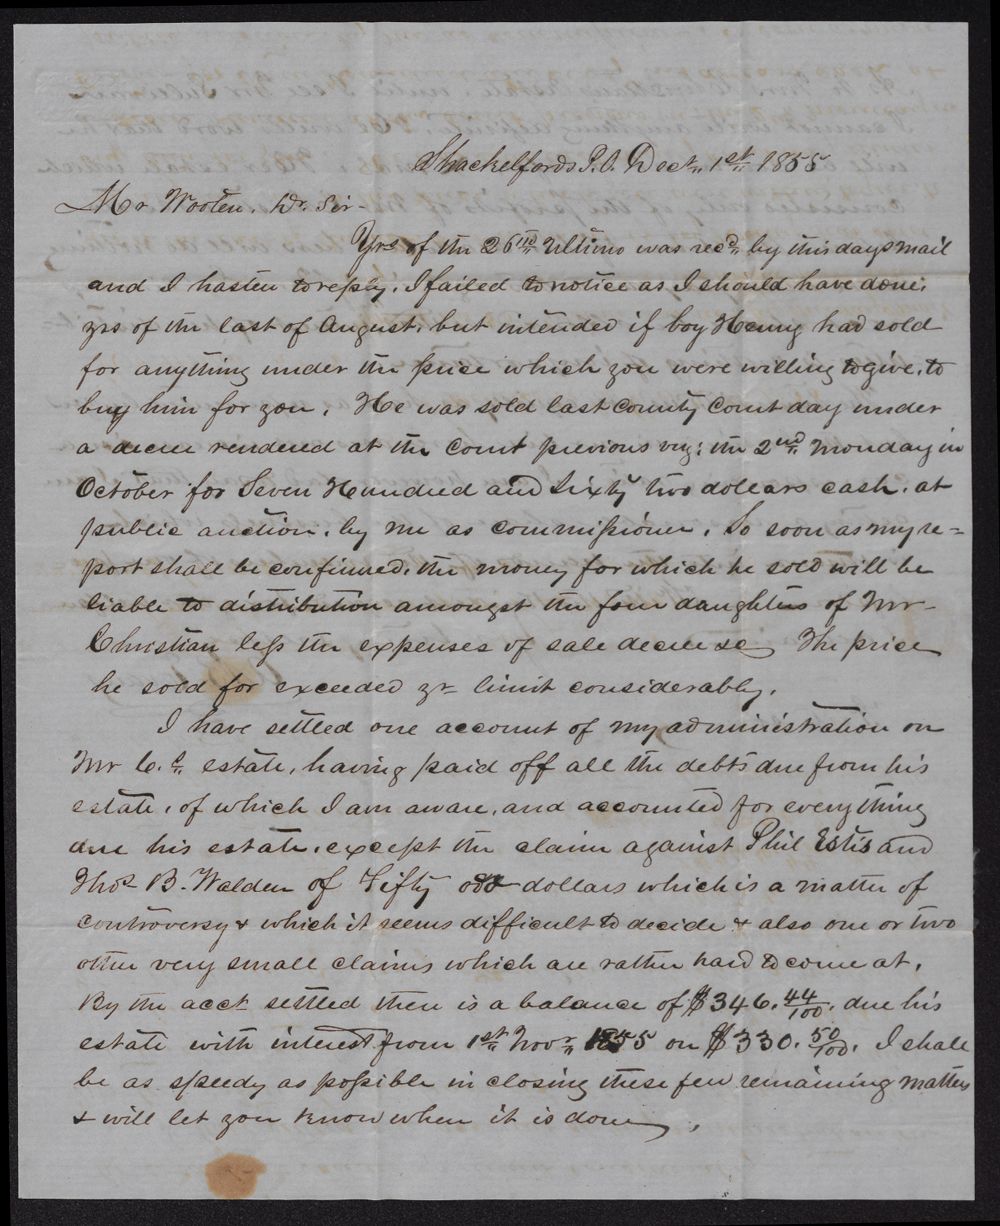 Shackelfords P.O. Decr. 1st 1855
Mr Wooten, Dr. Sir-
Yrs of the 26th Ultimo was recd. by this days mail
and I hasten to reply. I failed to notice as I should have done,
yrs of the last of August, but intended if boy Henry had sold
for anything under the price which you were willing to give, to
buy him for you. He was sold last County Court day under
a decree rendered at the Court previous viz; the 2nd Monday in
October for Seven Hundred and Sixty two dollars cash, at
public auction, by me as commissioner. So soon as my re=
port shall be confirmed, the money for which he sold will be
liable to distribution amongst the four daughters of Mr
Christian less the expenses of sale decree &c The price
he sold for exceeded yr limit considerably.
I have settled one account of my administration on
Mr C.s estate, having paid off all the debts due from his
estate, of which I am aware, and accounted for everything
due his estate, except the claim against Phil Estis and
Thos B. Walden of Fifty odd dollars which is a matter of
controversy & which it seems difficult to decide & also one or two
other very small claims which are rather hard to come at.
By the acct settled there is a balance of $346.44/100. due his
estate with interest from 1st Novr 1855 on $330.50/100. I shall
be as speedy as possible in closing these few remaining matters
& will let you know when it is done.